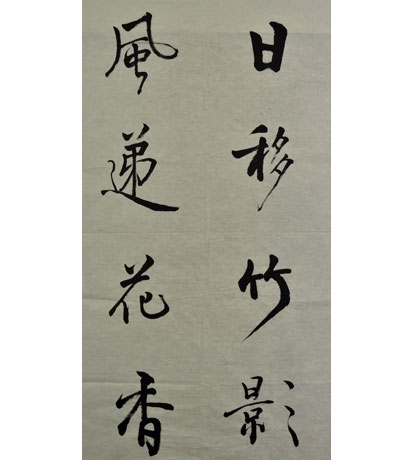 日移竹影
風递花香